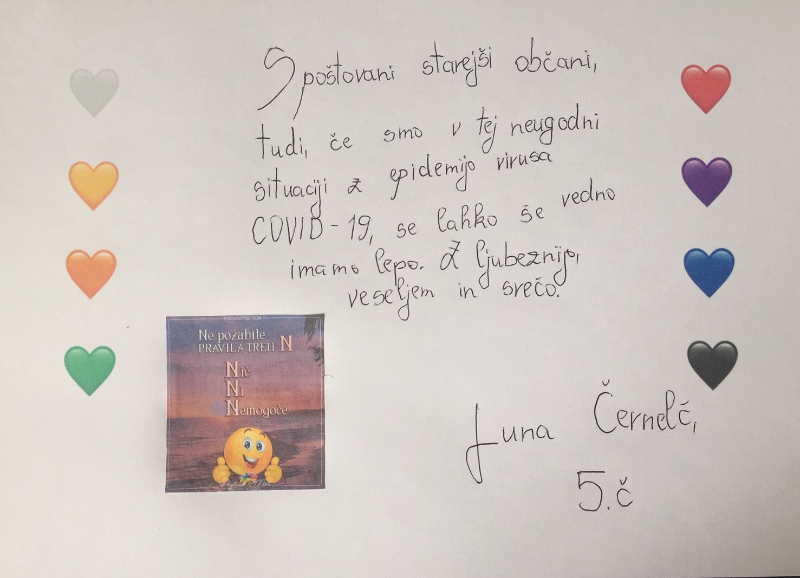 Spoštovani starejši občani,
tudi, če smo v tej neugodni
situaciji z epidemijo virusa
COVID-19, se lahko še vedno
imamo lepo. Z ljubeznijo,
veseljem in srečo.
Ne pozabite
PRAVILA TREH N
Nič
Ni
Nemogoče
Luna Černelč,
5.č